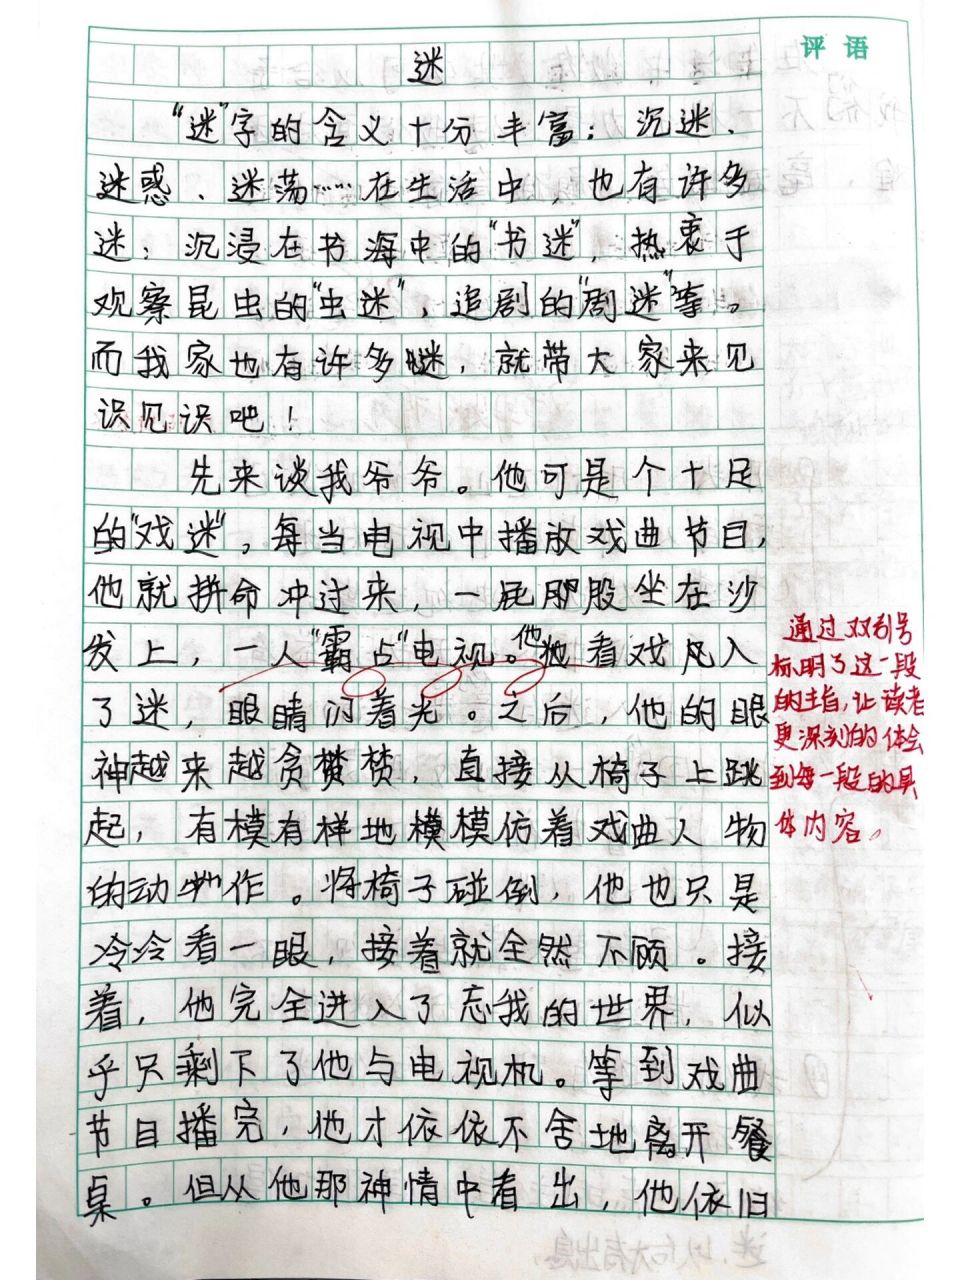 评语
迷
“迷”字的含义十分丰富：沉迷、
迷惑、迷荡……在生活中，也有许多
迷：沉浸在书海中的“书迷”，热衷于
观察昆虫的“虫迷”，追剧的“剧迷”等。
而我家也有许多迷，就带大家来见
识见识吧！
先来谈我爷爷。他可是个十足
的“戏迷”。每当电视中播放戏曲节目，
他就拼命冲过来，一屁股坐在沙
发上，一人“霸占”电视。他看戏入
了迷，眼睛闪着光。之后，他的眼
神越来越贪婪，直接从椅子上跳
起，有模有样地模仿着戏曲人物
的动作。将椅子碰倒，他也只是
冷冷看一眼，接着就全然不顾。接
着，他完全进入了忘我的世界，似
乎只剩下了他与电视机。等到戏曲
节目播完，他才依依不舍地离开餐
桌。但从他那神情中看出，他依旧
通过双引号
标明了这一段
的主旨，让读者
更深刻的体会
到每一段的具
体内容。